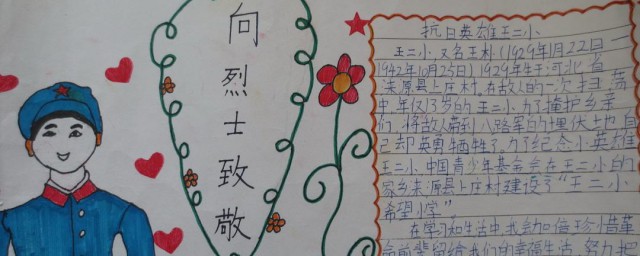 向烈士致敬
抗日英雄王二小
王二小,又名王朴(1929年1月22日—
1942年10月25日)1929年生于河北省
涞源县上庄村,在敌人的一次扫荡
中,年仅13岁的王二小,为了掩护乡亲
们,将敌人带到八路军的埋伏地,自
己却英勇牺牲了,为了纪念小英雄
王二小,中国青少年基金会在王二小的
家乡涞源县上庄村建设了“王二小
希望小学”
在学习和生活中,我会加倍珍惜革
命前辈留给我们的幸福生活,努力把